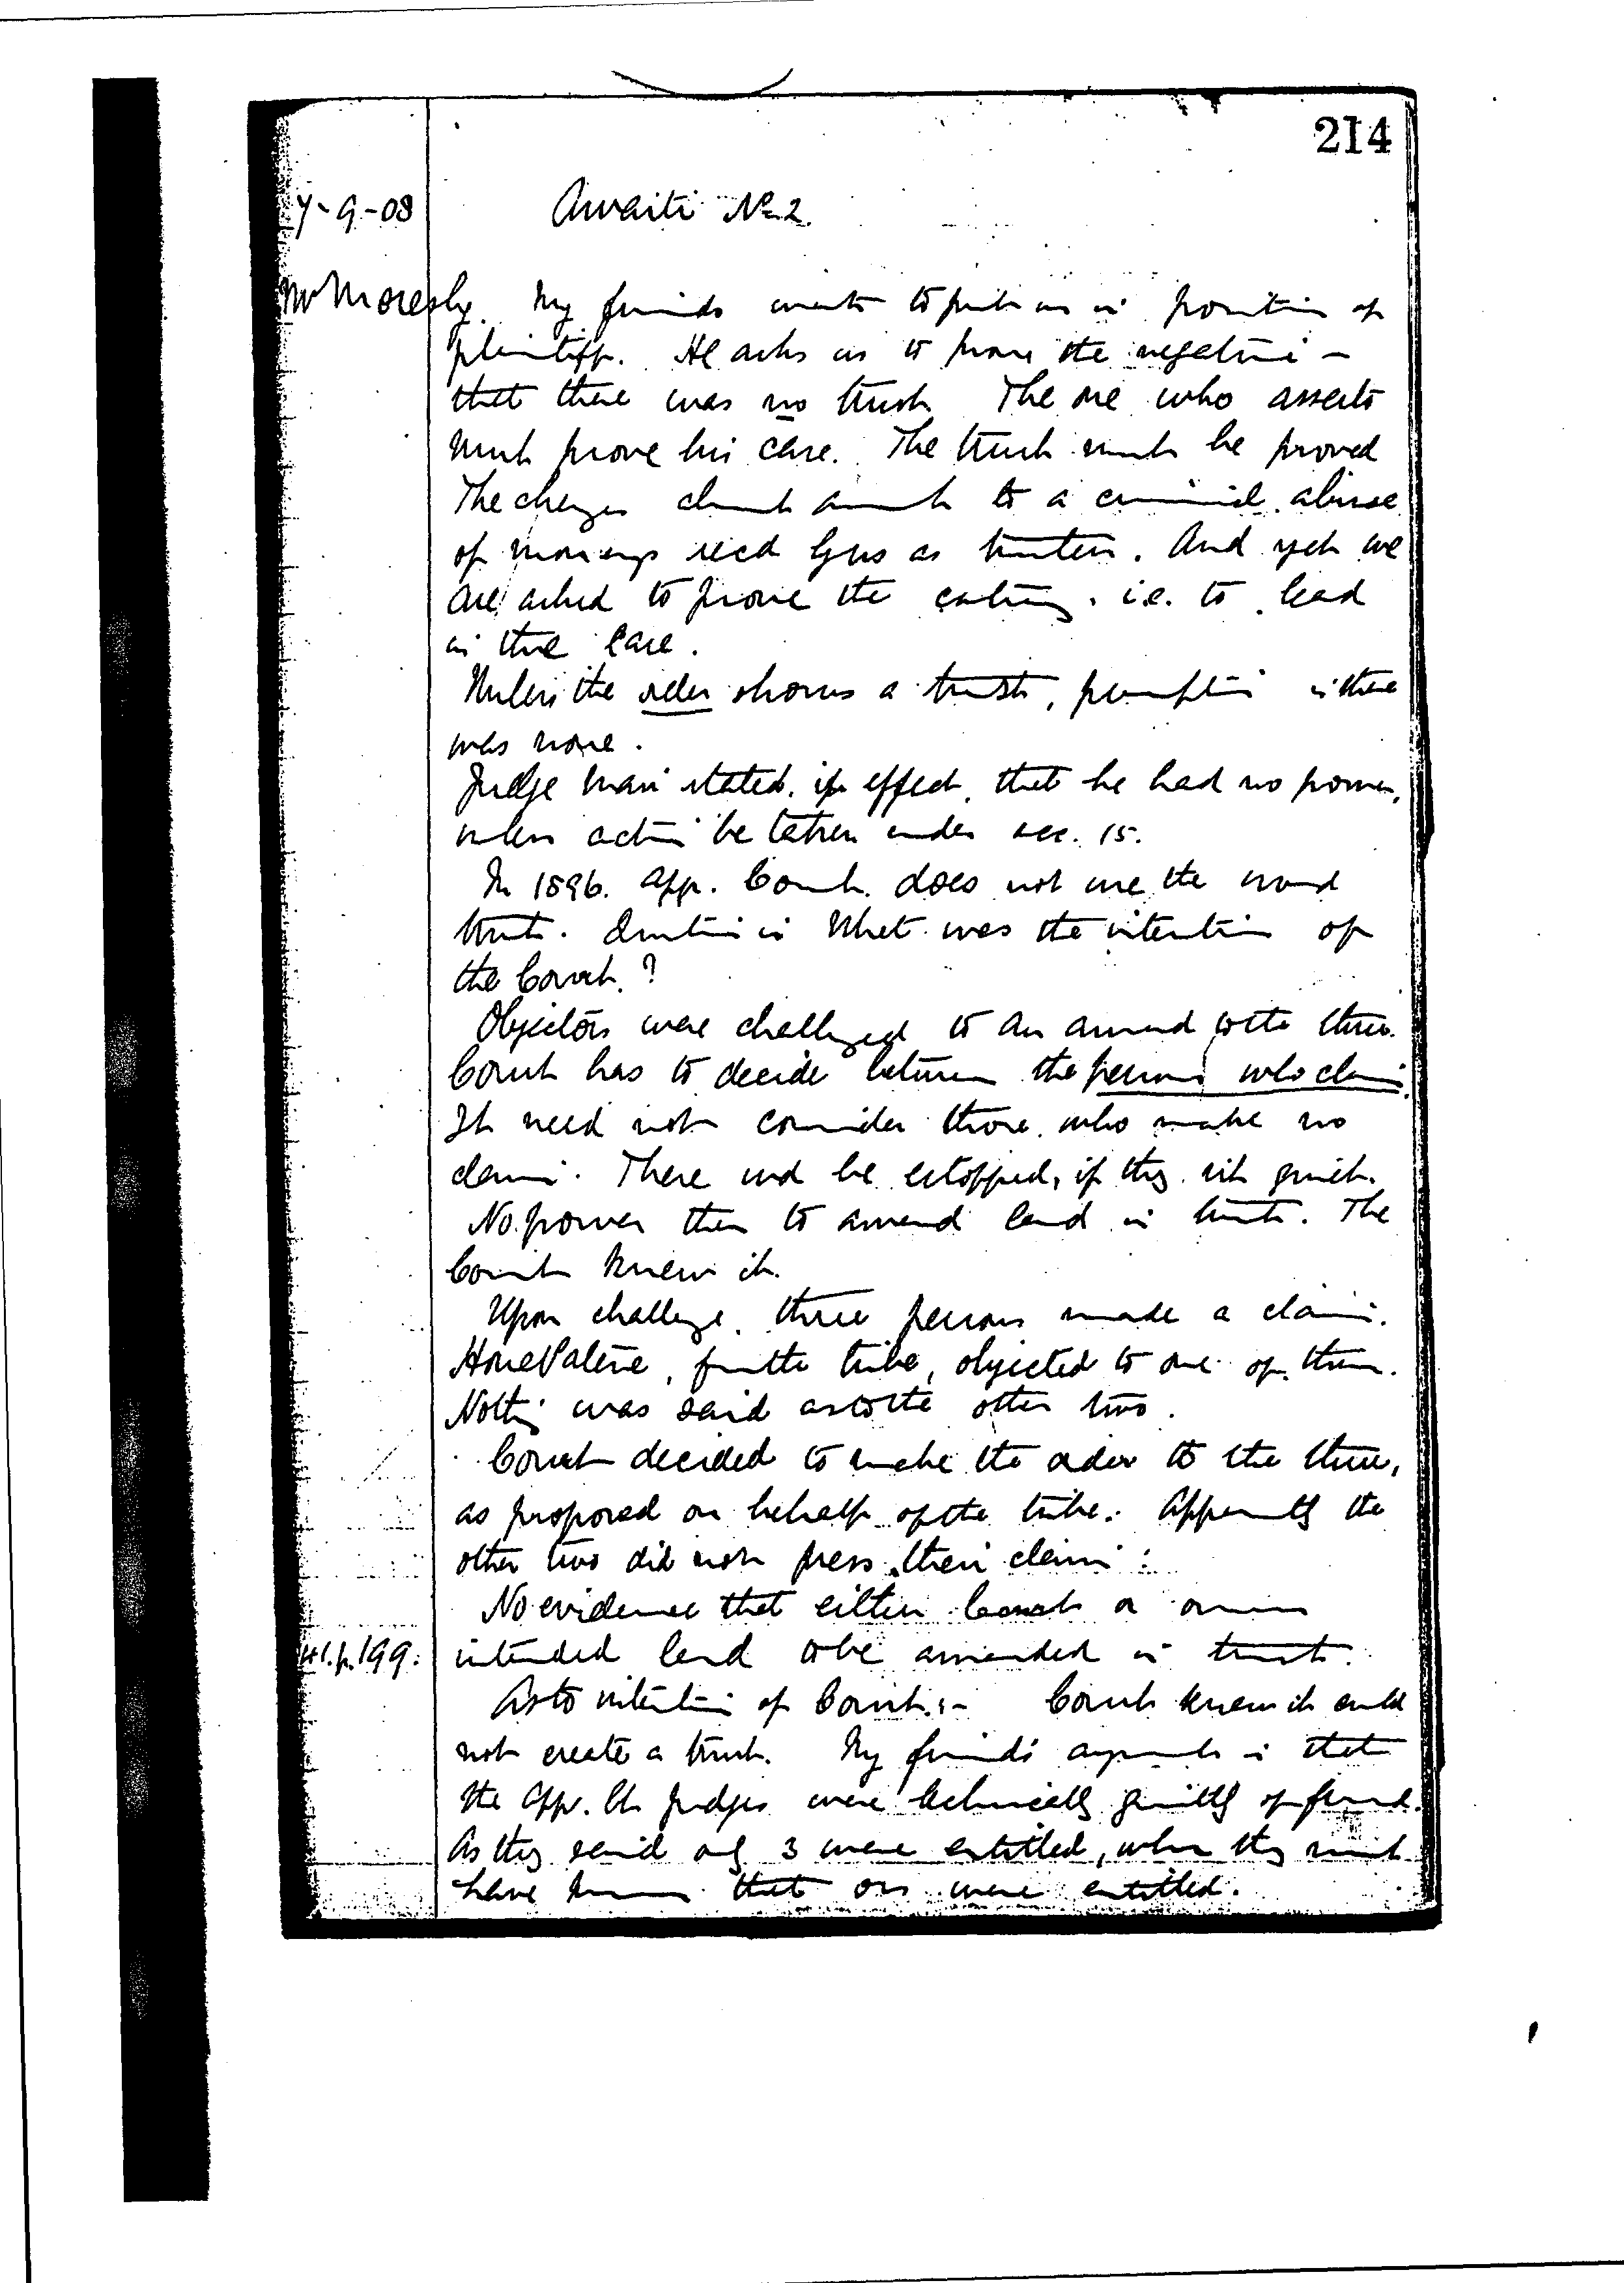 214
7-9-08 Awaiti No 2.
Mr Moresby. My friends wants to put us in position of
plaintiff. He asks us to prove the negative -
that there was no trust. The one who asserts
must prove his case. The trust must be proved
The charges almost amount to a criminal abuse
of moneys recd by us as trustees. And yet we
are asked to prove the contrary. i.e. to lead
in the case.
Unless the order shows a trust, presumption is there
was none.
Judge Mair stated, in effect, that he had no power,
unless action be taken under sec. 15.
In 1896. App. Court. does not use the word
trust. Question is What was the intention of
the Court.?
Objectors were challenged to an award to the three.
Court has to decide between the persons who claim.
It need not consider those who make no
claim. These wd be estopped, if they sit quiet.
No power then to award land in trust. The
Court knew it.
Upon challenge, three persons made a claim.
Hone Patene, for the tribe, objected to one of them.
Nothing was said as to the other two.
Court decided to make the order to the three,
as proposed on behalf of the tribe. Apparently the
other two did not press their claim.
No evidence that either Court or owners
41. p. 199. intended land to be awarded in trust.
As to intention of Court:- Court knew it could
not create a trust. My friend's argument is that
the App. Ct. Judges were technically guilty of fraud.
As they said only 3 were entitled, when they must
have known that were entitled.